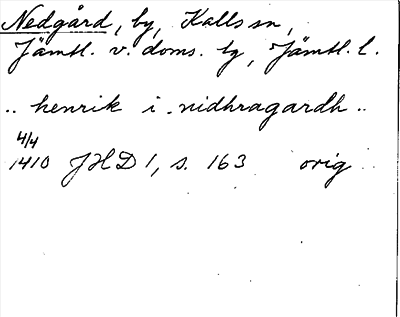 Nedgård, by, Kalls sn,
Jämtl. v. doms. tg, Jämtl. l.
.. henrik i nidhragardh ..
4/4
1410 JHD 1, s. 163 orig